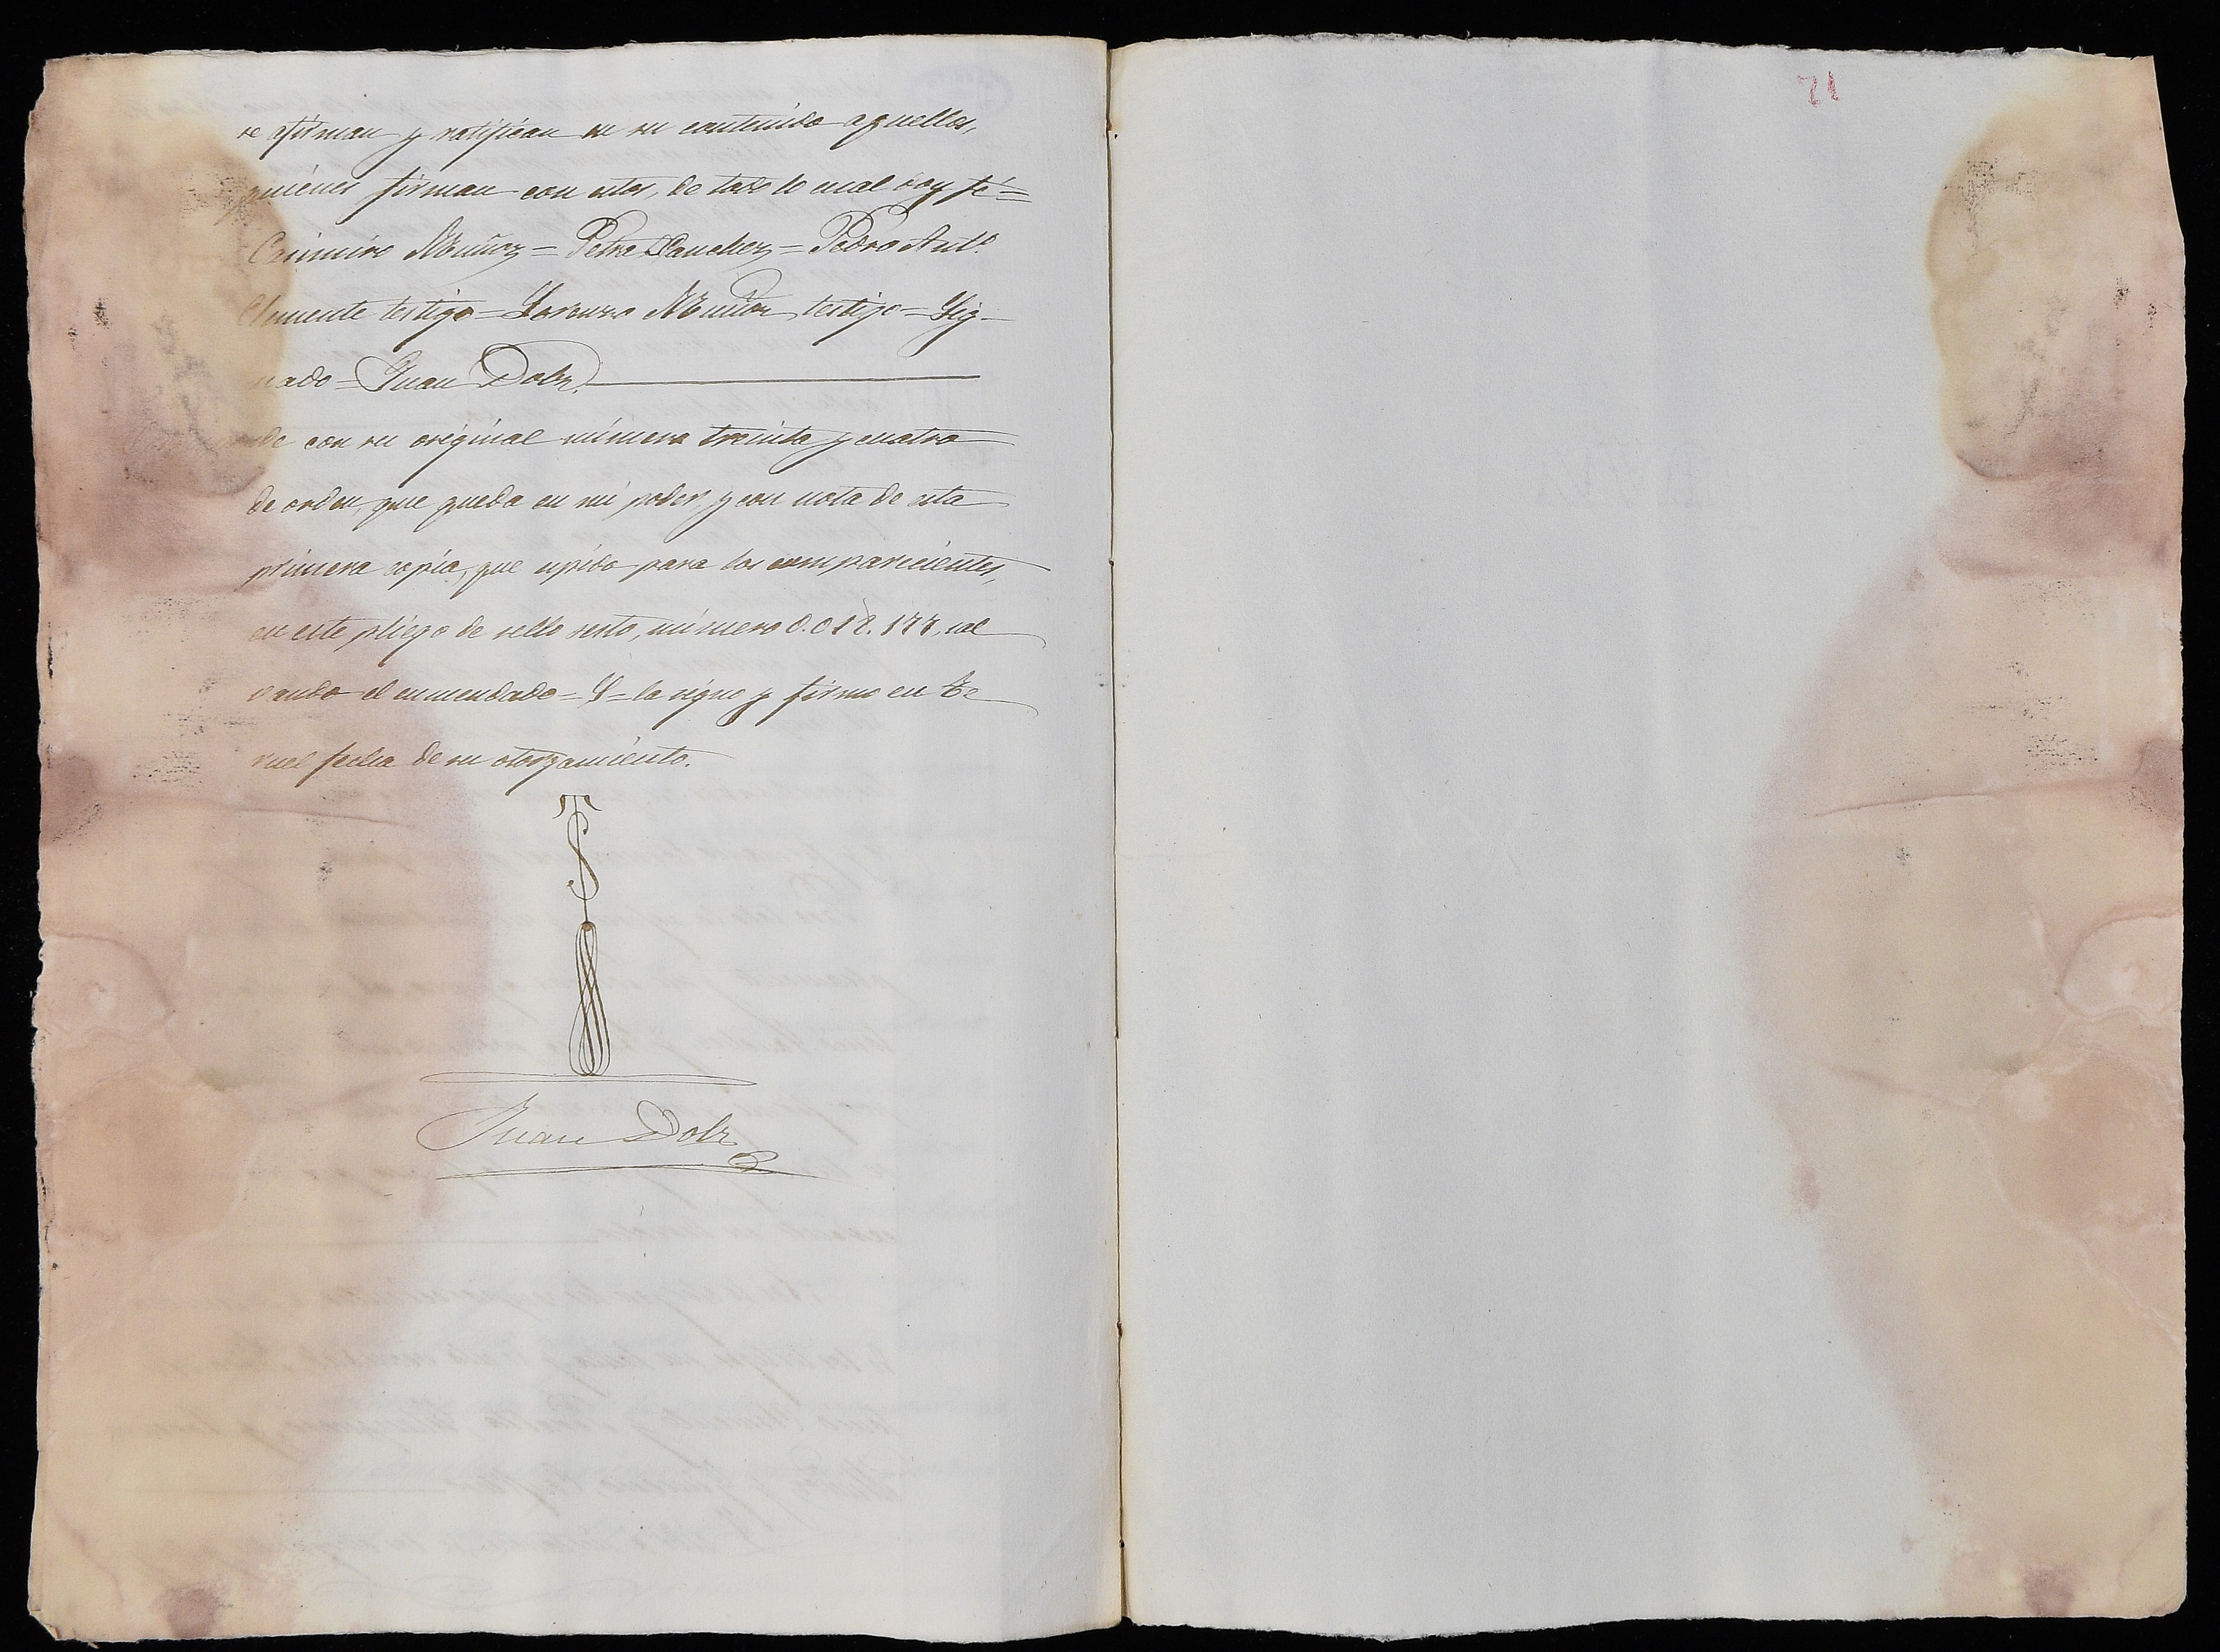 se afirman y ratifican en su contenido aquellos,
quienes firman con estos, de todo lo cual doy fé=
Casimiro Muñoz = Petra Sanchez = Pedro Antº.
Clemente testigo = Lorenzo Muñoz testigo = Sig-
nado = Juan Dolz.
de con su original número treinta y cuatro
de orden, que queda en mi poder, y con nota de esta
primera copia, que espido para los comparecientes,
en este pliego de sello sesto, número 0.018.177, sal
vando el enmendado = S = la signo y firmo en Te
ruel fecha de su otorgamiento.
Juan Dolz
21